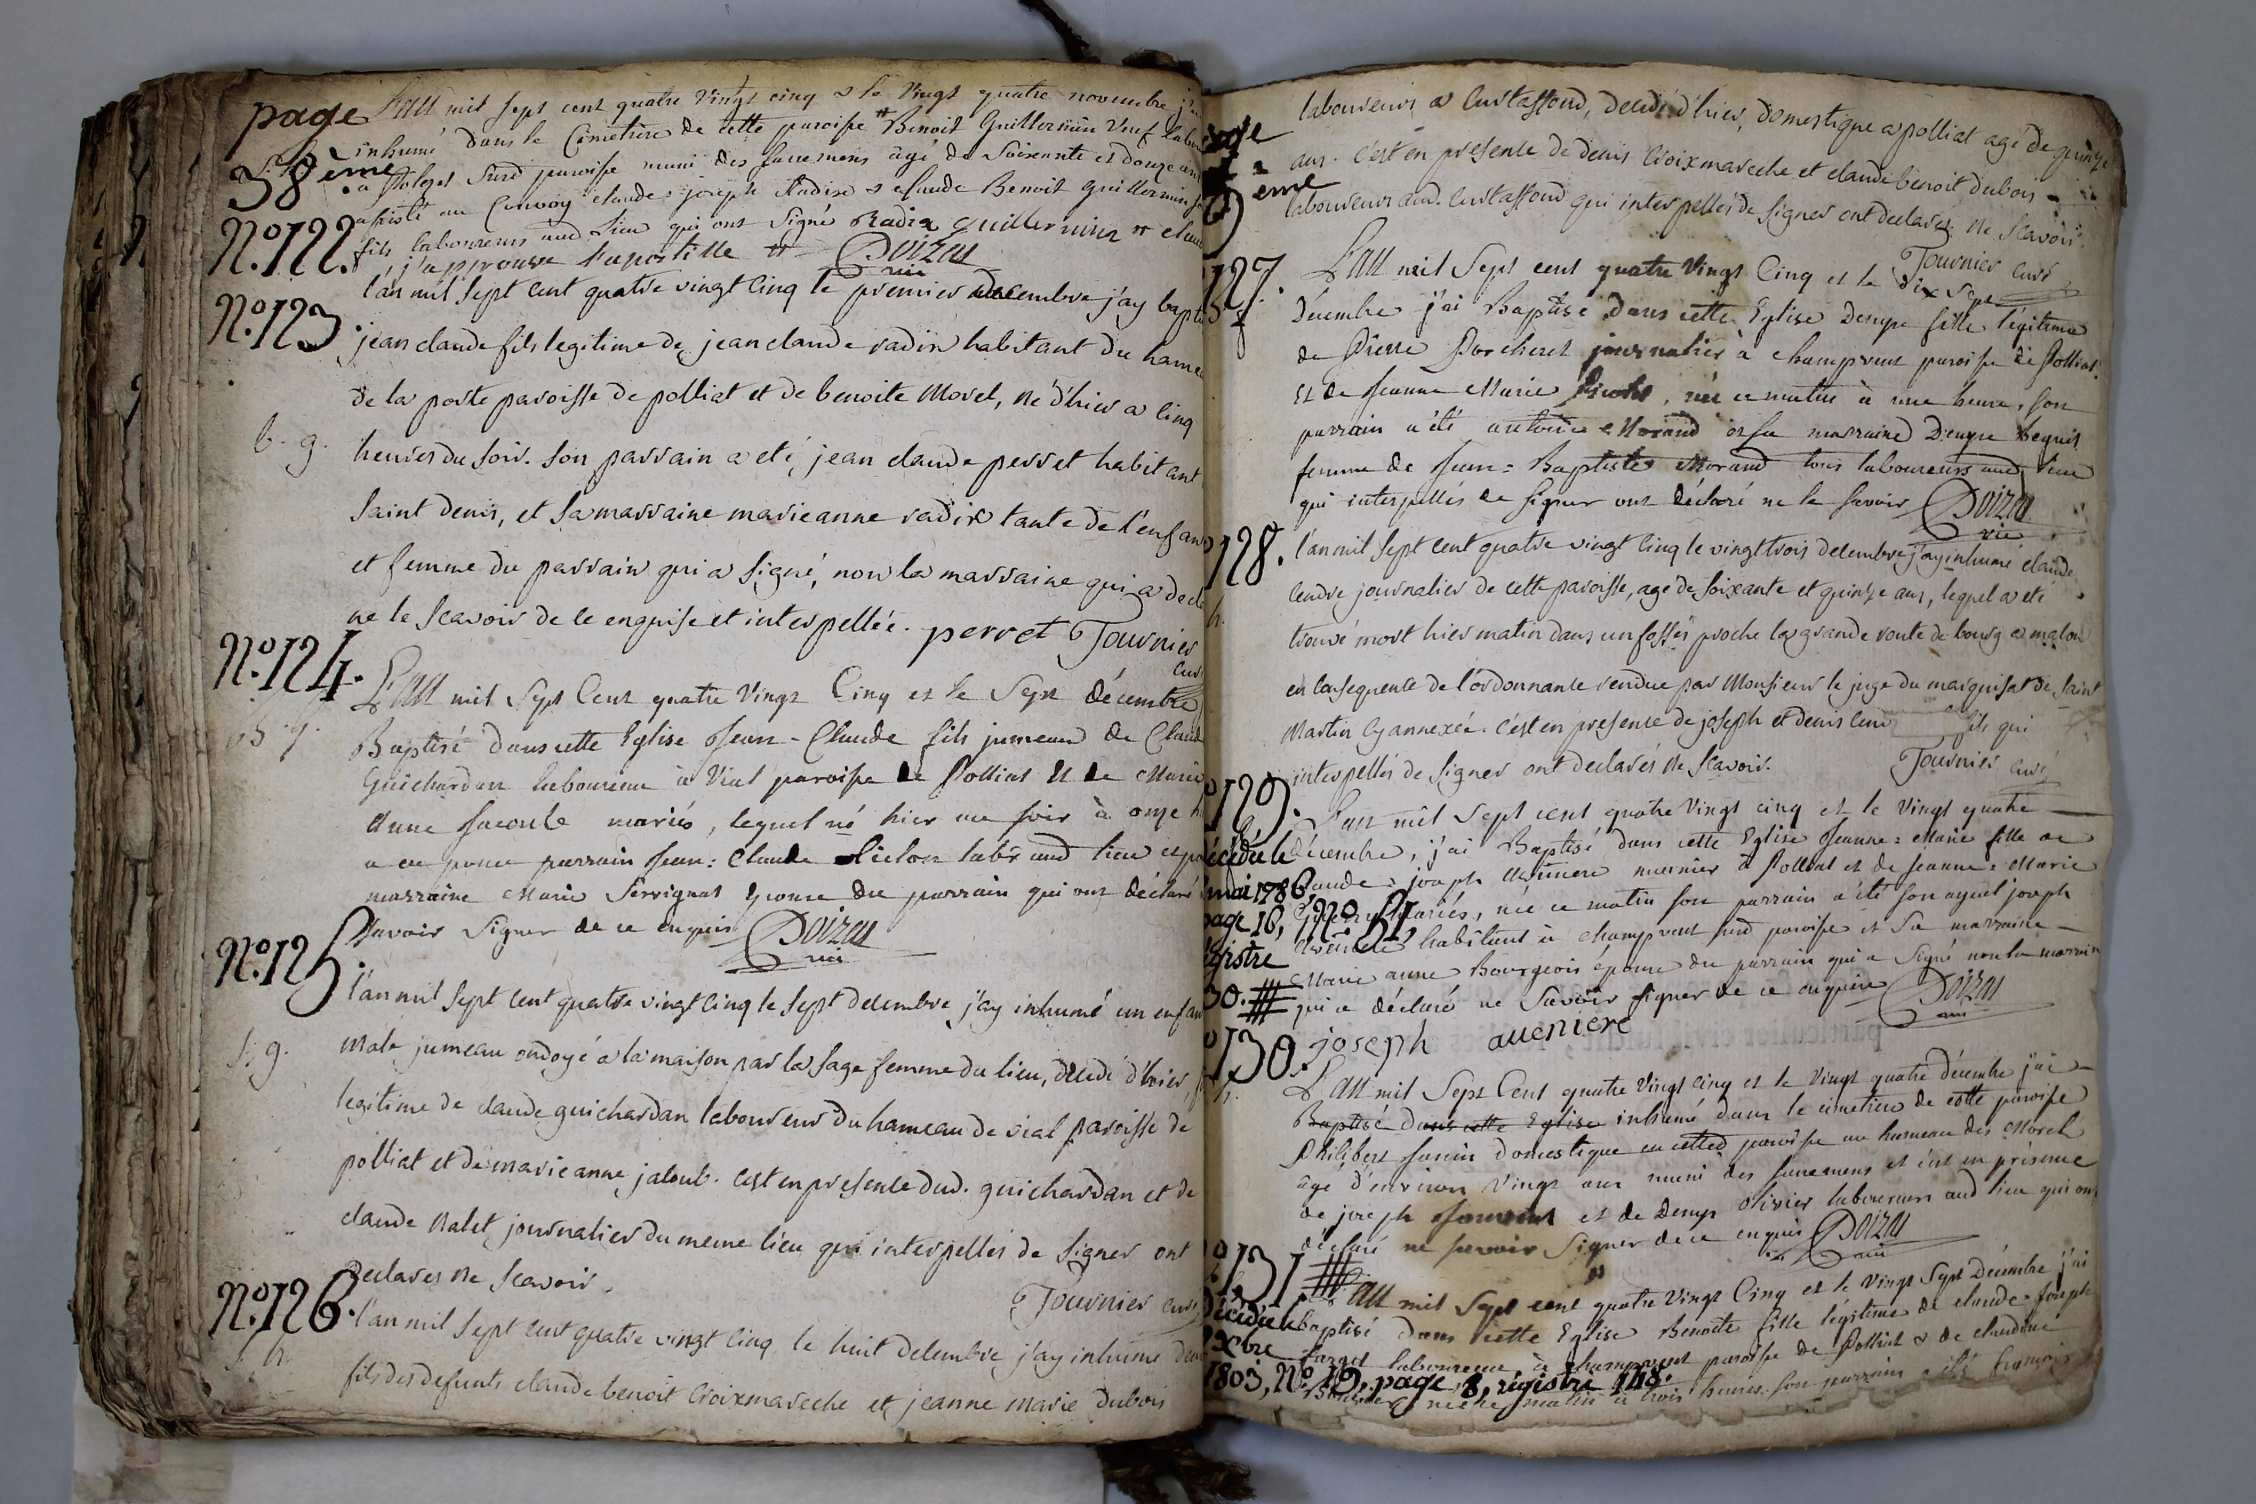 page
38ème
L'an mil sept cent quatre vingt cinq & le vingt quatre novembre j'ai
inhumé dans le Cimetière de cette paroisse # Benoit Guillermin veuf
à Polozet susd paroisse muni des sacremens âgé de soixante et douze ans
assisté au Convoy claude joseph Radix & claude Benoit guillermin
fils laboureurs aud lieu qui ont signé Radix guillermin # claude
j'approuve l'apostille # Doizat
vic
N.º122.
N.º123.
l'an mil sept cent quatre vingt cinq le premier decembre j'ay bapti
jean claude fils legitime de jean claude radix habitant du hameau
de la poste paroisse de polliat et de benoite Morel, né d'hier a cinq
b. g.
heures du soir. son parrain a eté, jean claude perret habitant
saint denis, et sa marraine marieanne radix tante de l'enfant
et femme du parrain qui a signé, non la marraine qui a decla
ne le scavoir de ce enquise et interpellée. perret Tournier
curé
N.º124.
L'an mil sept Cent quatre vingt Cinq et le sept décembre
Baptisé dans cette Eglise Jean-Claude fils jumeau de Claude
Guichardan laboureur à Vial paroisse de Polliat et de Marie
Anne Jacoule mariés, lequel né hier au soir à onze h
a eu pour parrain Jean=Claude labr aud lieu et po
marraine Marie Servignat Epouse du parrain qui ont déclaré
savoir signer de ce enquis Doizat
vic
N.º125.
l'an mil sept cent quatre vingt cinq le sept decembre j'ay inhumé un enfant
s. g.
male jumeau ondoyé a la maison par la sage femme du lieu, decedé d'hier,
legitime de claude guichardan laboureur du hameau de vial paroisse de
polliat et de marieanne jacoub. c'est en presence dud. guichardan et de
claude Nalet journalier du meme lieu qui interpellés de signer ont
declarés ne scavoir.
Tournier curé
N.º126.
l'an mil sept cent quatre vingt cinq le huit decembre j'ay inhumé
fils des defunts claude benoit Croixmareche et jeanne marie dubois
laboureurs a Curtaffond, decedé d'hier, domestique a polliat agé de quinze
ans. c'est en presence de denis Croixmareche et claude benoit dubois
laboureurs aud. Curtaffond qui interpellés de signer ont declarés ne scavoir.
Tournier curé
ème
127.
L'an mil sept cent quatre vingt Cinq et le dix sept
décembre j'ai Baptisé dans cette Eglise Denyse fille légitime
de Pierre Porcheret journalier à champvent paroisse de Polliat
et de Jeanne Marie, née ce matin à une heure, son
parrain a été antoine Morand et sa marraine Denyse
femme de Jean=Baptiste Morand tous laboureurs aud lieu
qui interpellés de signer ont déclaré ne le savoir Doizat
vic
128.
l'an mil sept cent quatre vingt cinq le vingt trois decembre j'ay inhumé claude
Cendre journalier de cette paroisse, agé de soixante et quinze ans, lequel a eté
h.
trouvé mort hier matin dans un fossés proche la grande route de bourg a macon
en consequence de l'ordonnance rendue par Monsieur le juge du marquisat de saint
Martin cy annexée. c'est en presence de joseph et denis Cend fils qui
interpellés de signer ont declarés ne scavoir.
Tournier curé
129.
L'an mil sept cent quatre vingt cinq et le vingt quatre
décembre, j'ai Baptisé dans cette Eglise Jeanne=Marie fille de
claude=joseph meunier à Polliat et de Jeanne=Marie
mariés, née ce matin son parrain a été son ayeul joseph
habitant à champvent susd paroisse et sa marraine
Marie anne Bourgeois épouse du parrain qui a signé non la marraine
qui a déclaré ne savoir signer de ce enquise Doizat
vic
joseph aueniere
décédée le
mai 1786,
page 16, Nº 51,
registre
30. #
130.
L'an mil sept Cent quatre vingt cinq et le vingt quatre décembre j'ai
Baptisé dans cette Eglise inhumé dans le cimetière de cette paroisse
Philibert domestique en cette paroisse au hameau des Morels
âgé d'environ vingt ans muni des sacremens et c'est en presence
de joseph et de Denys Olivier laboureurs aud lieu qui ont
déclaré ne savoir signer de ce enquis Doizat
vic
131 #
L'an mil sept cent quatre vingt Cinq et le vingt sept Décembre j'ai
baptisé dans cette Eglise Benoite fille légitime de claude=joseph
laboureur à champvent paroisse de Polliat & de claudine
née ce matin à trois heures. son parrain a été françois
Décédée le
Xbre
1803, Nº 19, page 8, registre 148.